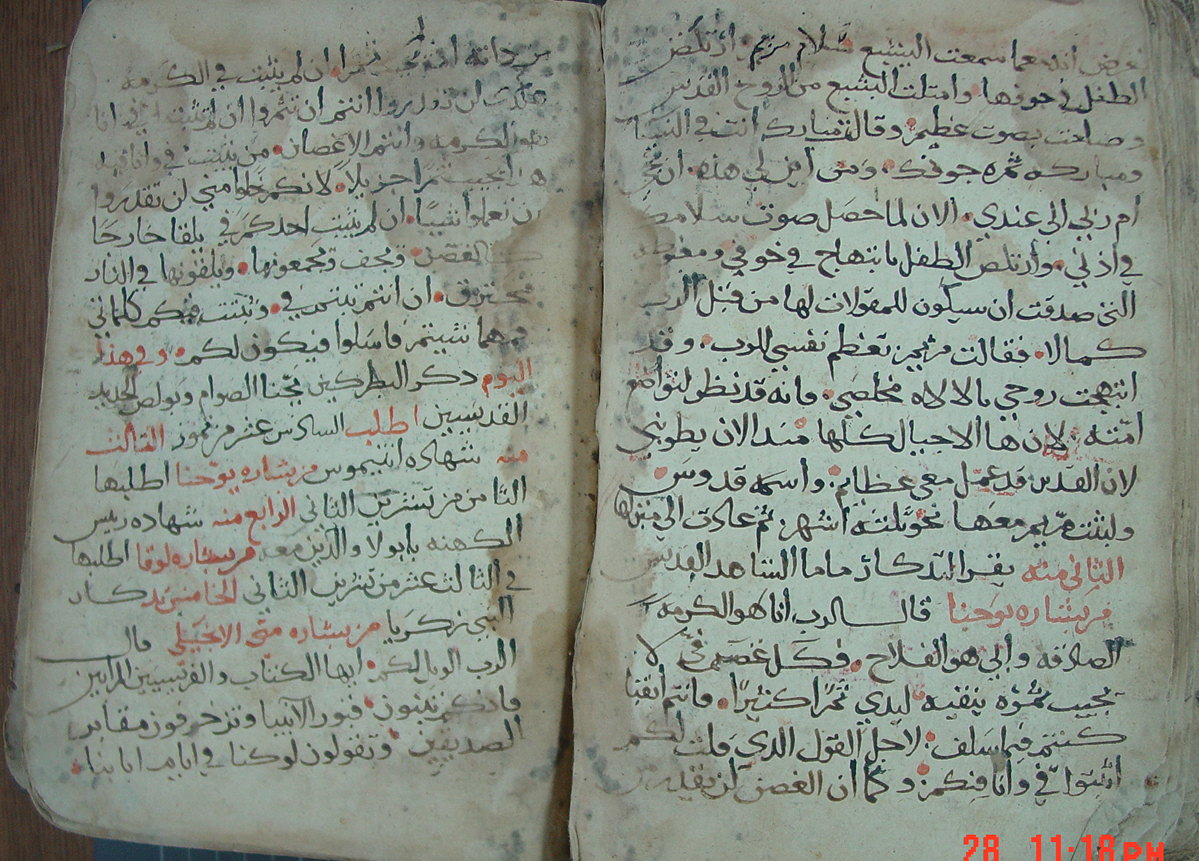 عرض انه معما سمعت اليشبع سلام مريم. ارتكض
الطفل في جوفها. وامتلت اليشبع من الروح القدس
وصاحت بصوت عظيم وقالت مباركه انت في النسا
ومباركه ثمره جوفك. ومن اين لي هذه. ان تجي
ام ربي الى عندي. الان لما حصل صوت سلامك
في اذني. وارتكض الطفل بابتهاج في جوفي ومغبوطه
التي صدقت ان سيكون للمقولات لها من قبل الرب
كمالا. فقالت مريم تعظم نفسي للرب. وقد
ابتهجت روحي بالالاه مخلصي. فانه قد نظر لتواضع
امته. لان ها الاجيال كلها منذ الان يطوبني
لان القدير قد عمل معي عظايم. واسمه قدوس
ولبثت مريم معها نحو ثلثة اشهر. ثم عادت الى منزلها
الثاني منه يقرا لتدكار ماما الشاهد القديس
من بشاره يوحنا قال الرب انا هو الكرمه
الصادقه وابي هو الفلاح. فكل غصن في لا
يجيب ثمره ينفيه لبدي ثمرا كثيرا. فانتم انقيا
كنتم فيما سلف. لاجل القول الذي قلت لكم
اثبتوا في وانا فيكم. وكما ان الغصن لن يقدر
من داته ان يجيب ثمرا ان لم يثبت في الكرمه
ان تقدروا انتم ان تثمروا ان لم تثبتوا في انا
هو الكرمه وانتم الاغصان. من يثبت في وانا فيه
هذا يجيب ثمرا جزيلا. لانكم خلوا مني لن تقدروا
ان تعملوا شيا. ان لم يثبت احدكم في يلقا خارجا
الغصن. فيجف فيجمعونها. ويلقونها في النار
فيحترق. ان انتم ثبتم في. وثبتت فيكم كلماتي
فمهما شيتم فاسلوا فيكون لكم. وفي هذا
اليوم ذكر البطركين يحنا الصوام وبولص الجديد
القديسين اطلب السادس عشر من تموز الثالث
منه شهاده انتيموس من بشاره يوحنا اطلبها
الثامن من تشرين الثاني الرابع منه شهاده ريس
الكهنه بابولا والدين معه من بشاره لوقا اطلبها
في الثالث عشر من تشرين الثاني الخامس تدكار
النبي زكريا من بشاره متى الانجيلي قال
الرب الويل لكم. ايها الكتاب والفريسيين المرايين
فاذكم تبنون. قبور الانبيا وتزخرفون مقابر
الصديقين. وتقولون لو كنا في ايام ابابنا.
28 11:18 PM